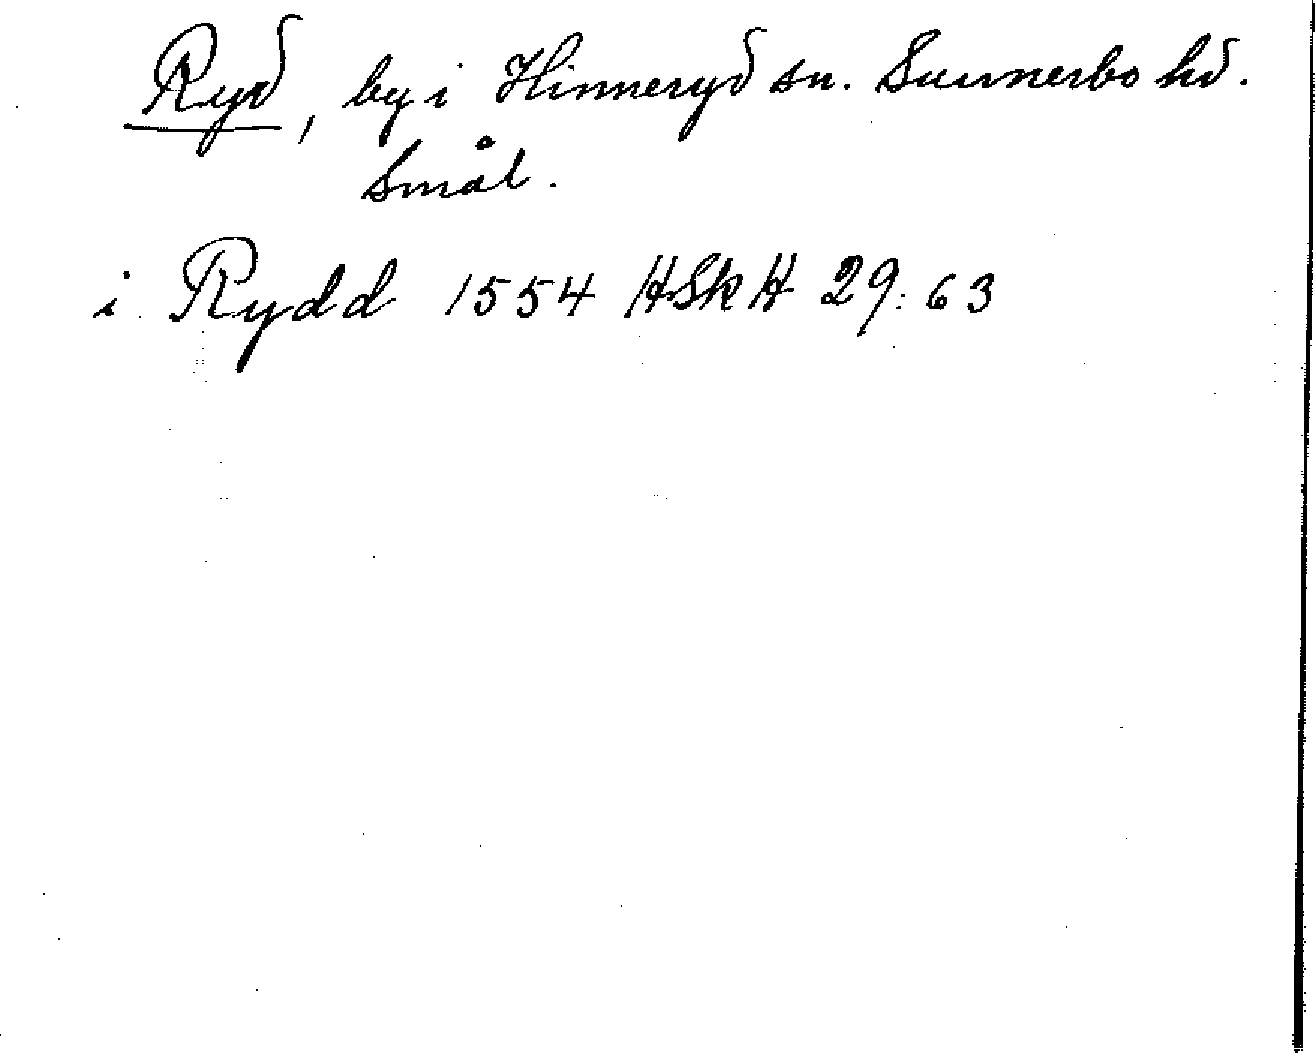 Ryd, by i Hinneryd sn. Sunnerbo hd.
Smål.
i Rydd 1554 HSkH 29:63